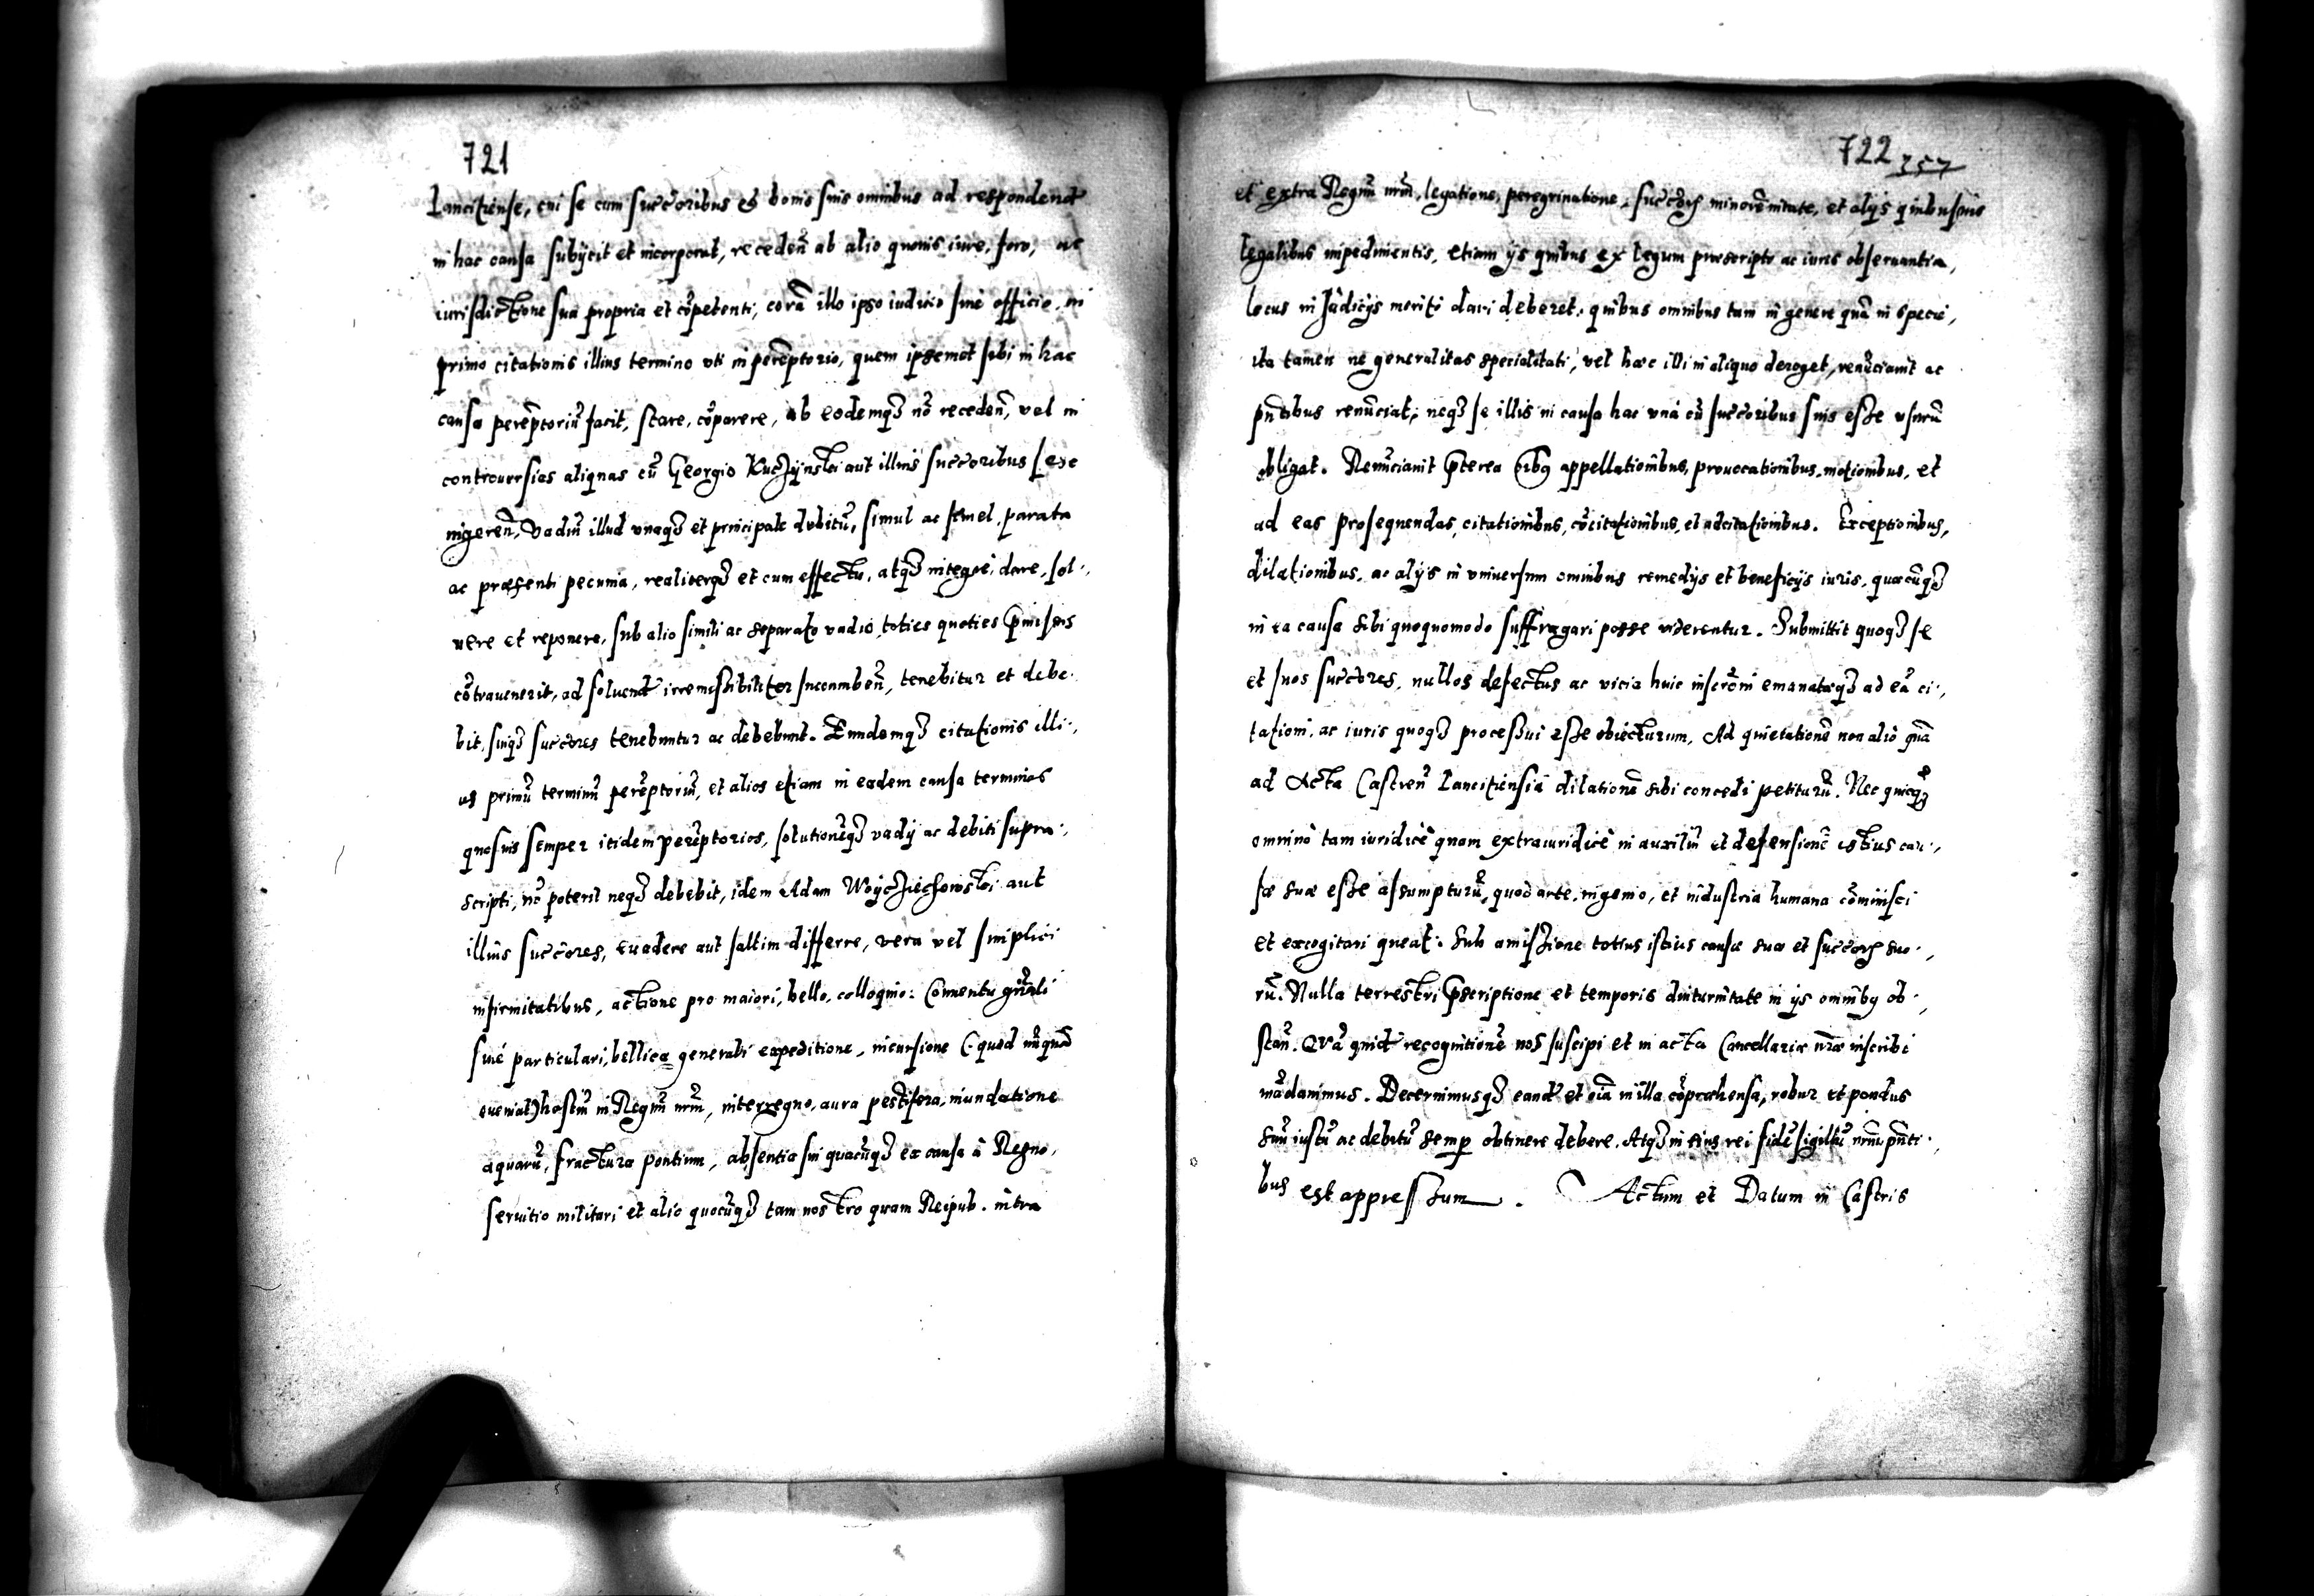 721
Lancitiense, cui se cum succ̃oribus et bonis suis omnibus ad respondend̃
in hac causa subÿcit et incorporat, receden̄ ab alio quouis iure, foro, ac
iurisdictione sua propria et cõpetenti, corã illo ipso iudicio siue officio, in
primo citationis illius termino vti in perẽptorio, quem ipsemet sibi in hac
causa perẽptoriũ facit, stare, cõparere, ab eodemq3 nõ receden̄, vel in
controuersias aliquas cũ Georgio Kuczÿnski aut illius succ̃oribus sese
ingeren̄, Vadiũ illud vnaq3 et principale debitũ, simul ac semel, parata
ac præsenti pecunia, realiterq3 et cum effectu, atq3 integrè, dare, sol-,
uere et reponere, sub alio simili ac separato vadio, toties quoties p̃missis
cõtrauenerit, ad soluend̃ irremissibiliter incumben̄, tenebitur et debe-
bit, suiq3 succ̃ores tenebuntur ac debebunt. Eundemq3 citationis illi-,
us primũ terminũ perẽptoriũ, et alios etiam in eadem causa terminos
quosuis semper itidem perẽptorios, solutionẽq3 vadÿ ac debiti supra-,
scripti, nõ poterit neq3 debebit, idem Adam Woÿcziechowski aut
illius succ̃ores, euadere aut saltim differre, vera vel simplici
infirmitatibus, actione pro maiori, bello, colloquio: Conuentu gñrali
siue particulari, bellica generali expeditione, incursione (quod nũquã
eueniat) hostiũ in Regnũ nrm̃, interregno, aura pestifera, inundatione
aquarũ, fractura pontium, absentia sui quacũq3 ex causa à Regno,
seruitio militari et alio quocũq3 tam nostro quam Reipub. intra
722 357
et extra Regnũ nrm̃, legatione, peregrinatione, succ̃orũ minorẽnitate, et alÿs quibusuis
legalibus impedimentis, etiam ÿs quibus ex legum præscripto ac iuris obseruantia,
locus in Judicÿs meritò dari deberet, quibus omnibus tam in genere quã in specie,
ita tamen ne generalitas specialitati, vel hæc illi in aliquo deroget, renũciauit ac
pñtibus renũciat, neq3 se illis in causa hac vnà cũ succ̃oribus suis esse vsurũ
obligat. Renũciauit p̃terea oĩbq appellationibus, prouocationibus, motionibus, et
ad eas prosequendas, citationibus, cõcitationibus, et adcitationibus. Exceptionibus,
dilationibus, ac alÿs in vniuersum omnibus remedÿs et beneficÿs iuris, quæcũq3
in ea causa sibi quoquomodo suffragari posse viderentur. Submittit quoq3 se
et suos succ̃ores, nullos defectus ac vicia huic inscrõni emanatæq3 ad eã ci-,
tationi, ac iuris quoq3 processui esse obiecturum, Ad quietationẽ non alio quã
ad Acta Castren̄ Lancitiensiã dilationẽ sibi concedi petiturũ. Nec quicq3
omninò tam iuridicè quam extraiuridicè in auxiliũ et defensionẽ istius cau-,
sæ suæ esse assumpturũ, quod arte, ingenio, et industria humana cõminisci
et excogitari queat. Sub amissione totius istius causæ suæ et succ̃orũ suo-,
rũ. Nulla terrestri p̃scriptione et temporis diuturnitate in ÿs omnibq ob-,
stan̄. Quã quid̃ recognitionẽ nos suscipi et in acta Cancellariæ nr̃æ inscribi
mãdauimus. Decernimusq3 eand̃ et oĩa in illa cõpræhensa, robur et pondus
suũ iustũ ac debitũ semp̃ obtinere debere. Atq3 in eius rei fidẽ sigillũ nrm̃ pñti-,
bus est appressum. Actum et Datum in Castris